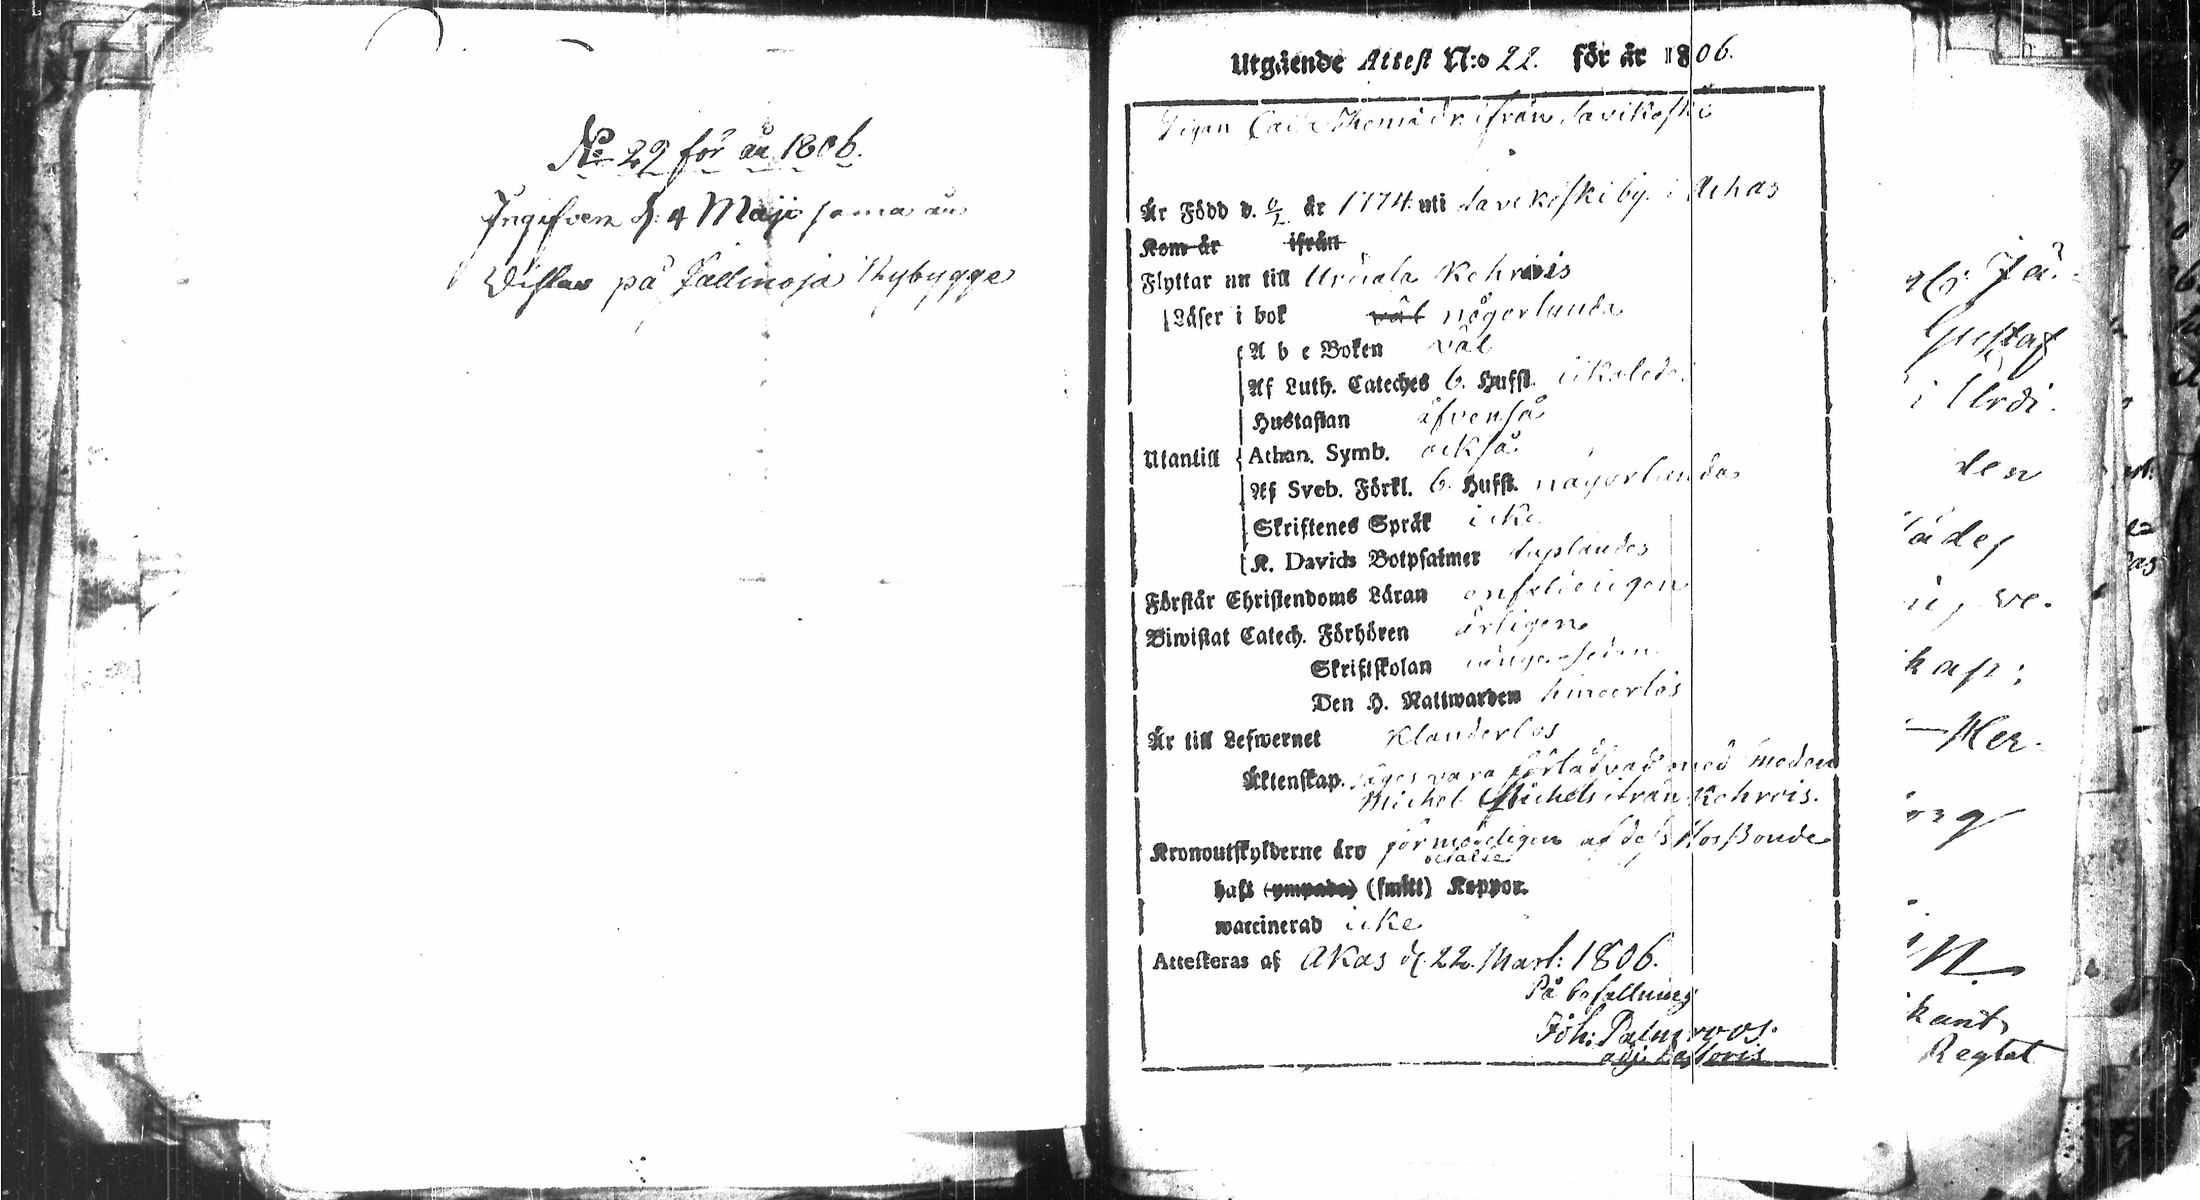 No 22 för år 1806.
Ingifven d. 4 Maji sama år
Vistas på Nybygge
Utgående Attest N:o 22. för år 1806.
Pigan Caisa Thomædr ifrån Savikoski
Är Född d. år 1774. uti Savikoski by i Achas
Kom år ifrån
Flyttar nu till Urdiala Kehrois
Läser i bok väl någorlunda
A b c Boken väl
Af Luth. Cateches 6. Hufst. likaledes
Hustaflan äfvenså
Utantill Athan. Symb. också
Af Sveb. Förkl. 6. Hufst. någorlunda
Skriftenes Språk icke
K. Davids Botpsalmer
Förstår Christendoms Läran enfaldeligen
Biwistat Catech. Förhören årligen
Skriftskolan
Den H. Nattwarden hinderlös
Är till Lefwernet klanderlös
Äktenskap. säges vara förlåfvad med
Michel Michels ifrån Kehrois.
Kronoutskylderne äro förmodeligen af dess Hosbonde
betalte
haft (ympade) (smitt) Koppor.
waccinerad icke
Attesteras af Akas d. 22. Mart: 1806.
På befallning
Joh: Palmroos.
adj. Pastoris
Gustaf
i Urdi.
den
ve.
kap:
Regtet